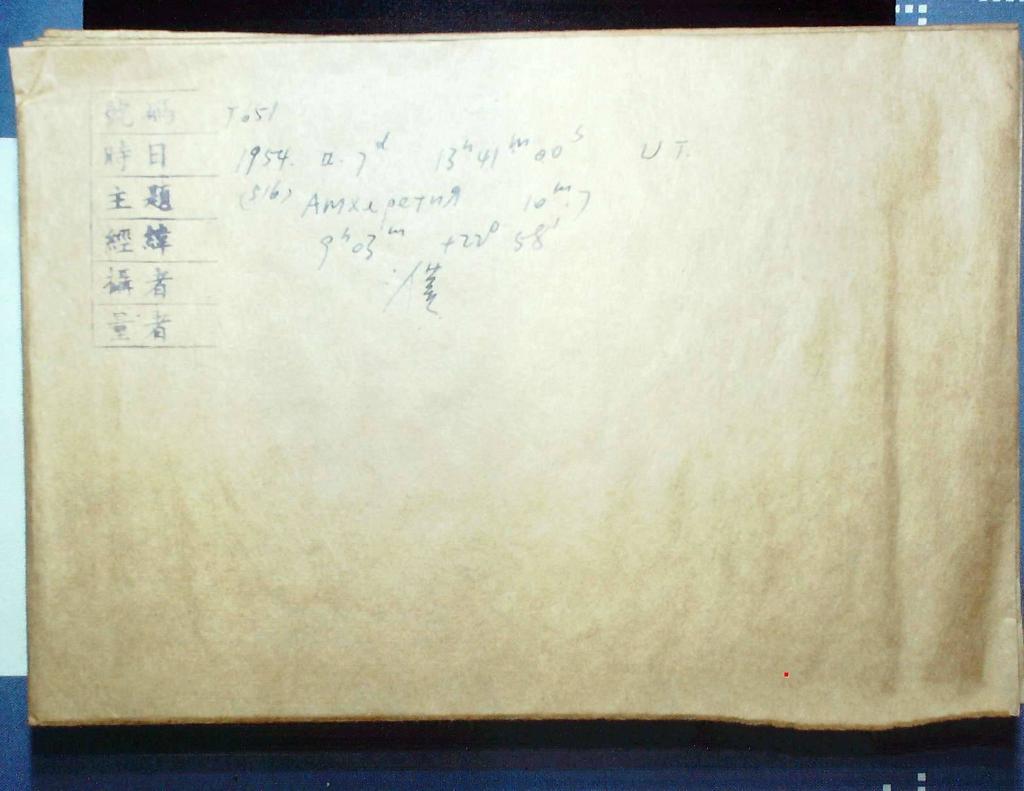 號碼 T051
時日 1954. II. 7ᵈ 13ʰ 41ᵐ 00ˢ U T.
主題 (516) Амхерстия 10ᵐ.7
經緯 9ʰ 03ᵐ +22° 58'
攝者
量者